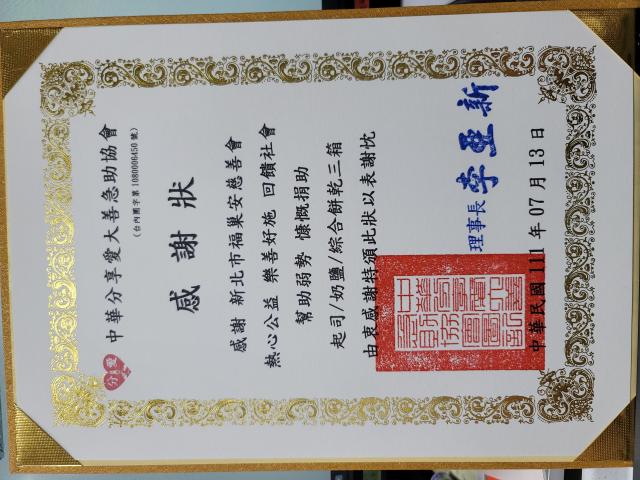 分愛
中華分享愛大善急助協會
(台內團字第1080006450號)
感謝狀
感謝 新北市福巢安慈善會
熱心公益 樂善好施 回饋社會
幫助弱勢 慷慨捐助
起司/奶鹽/綜合餅乾三箱
由衷感謝特頒此狀以表謝忱
理事長 李亞新
中華民國111年07月13日